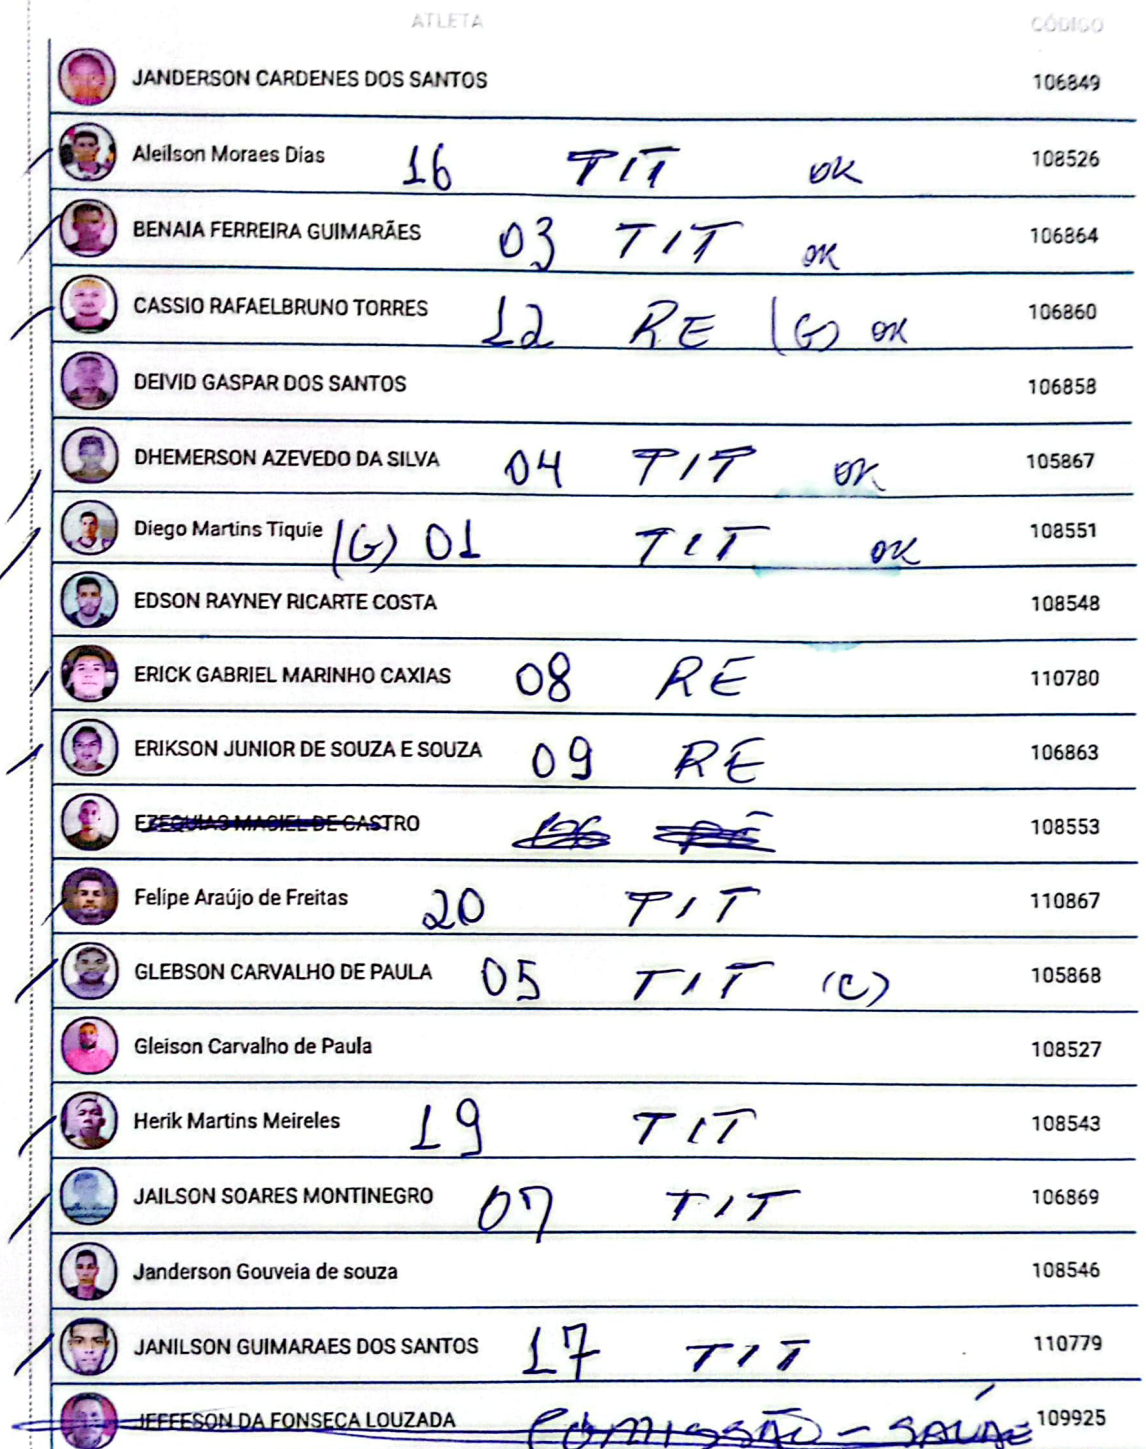 ATLETA CÓDIGO
JANDERSON CARDENES DOS SANTOS 106849
Aleilson Moraes Dias 16 TIT OK 108526
BENAIA FERREIRA GUIMARÃES 03 TIT OK 106864
CASSIO RAFAELBRUNO TORRES 12 RE (G) OK 106860
DEIVID GASPAR DOS SANTOS 106858
DHEMERSON AZEVEDO DA SILVA 04 TIT OK 105867
Diego Martins Tiquie (G) 01 TIT OK 108551
EDSON RAYNEY RICARTE COSTA 108548
ERICK GABRIEL MARINHO CAXIAS 08 RE 110780
ERIKSON JUNIOR DE SOUZA E SOUZA 09 RE 106863
EZEQUIAS MACIEL DE CASTRO RE 108553
Felipe Araújo de Freitas 20 TIT 110867
GLEBSON CARVALHO DE PAULA 05 TIT (C) 105868
Gleison Carvalho de Paula 108527
Herik Martins Meireles 19 TIT 108543
JAILSON SOARES MONTINEGRO 07 TIT 106869
Janderson Gouveia de souza 108546
JANILSON GUIMARAES DOS SANTOS 17 TIT 110779
JEFFESON DA FONSECA LOUZADA COMISSÃO - SAÚDE 109925